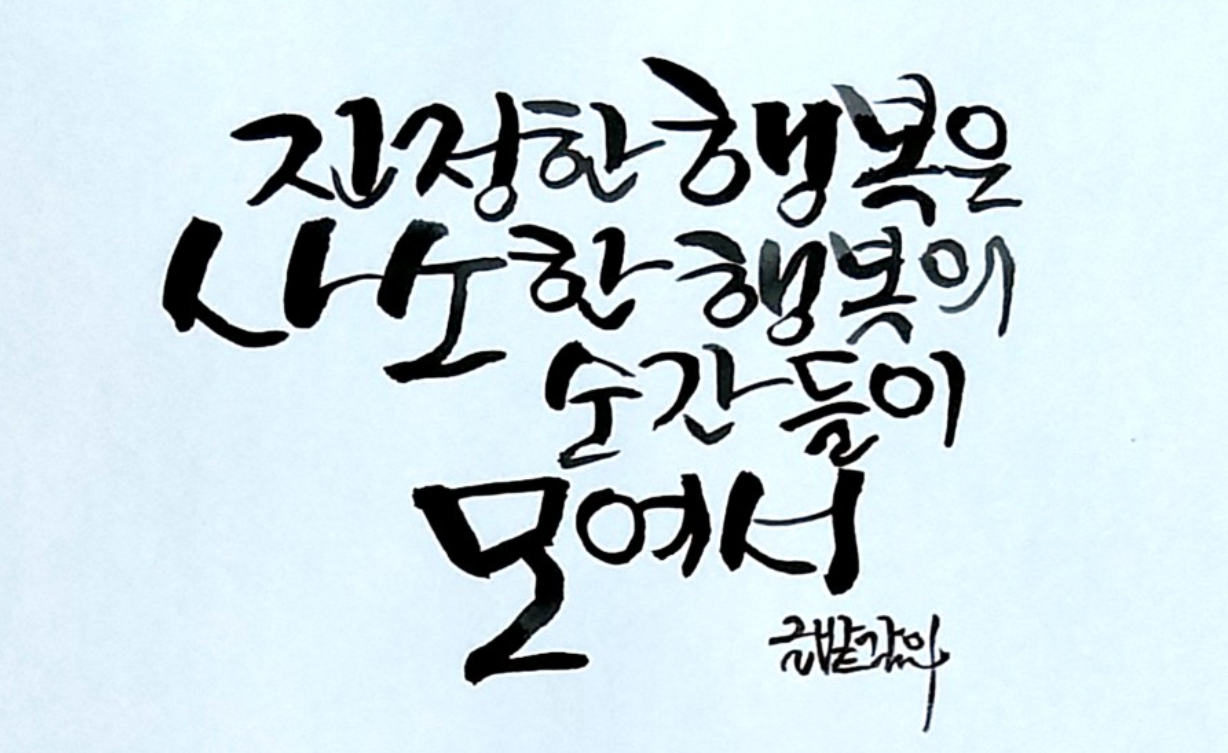 진정한 행복은
사소한 행복의
순간들이
모여서